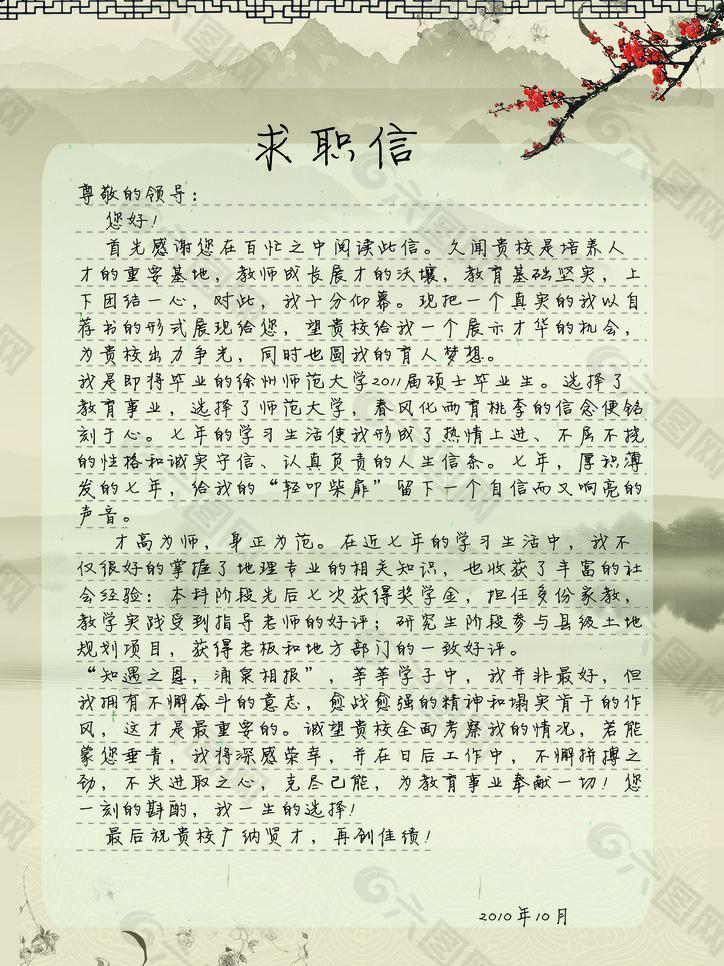 求职信
尊敬的领导：
您好！
首先感谢您在百忙之中阅读此信。久闻贵校是培养人
才的重要基地，教师成长展才的沃壤，教育基础坚实，上
下团结一心，对此，我十分仰慕。现把一个真实的我以自
荐书的形式展现给您，望贵校给我一个展示才华的机会，
为贵校出力争光，同时也圆我的育人梦想。
我是即将毕业的徐州师范大学2011届硕士毕业生。选择了
教育事业，选择了师范大学，春风化雨育桃李的信念便铭
刻于心。七年的学习生活使我形成了热情上进、不屈不挠
的性格和诚实守信、认真负责的人生信条。七年，厚积薄
发的七年，给我的“轻叩柴扉”留下一个自信而又响亮的
声音。
才高为师，身正为范。在近七年的学习生活中，我不
仅很好的掌握了地理专业的相关知识，也收获了丰富的社
会经验：本科阶段先后七次获得奖学金，担任多份家教，
教学实践受到指导老师的好评；研究生阶段参与县级土地
规划项目，获得老板和地方部门的一致好评。
“知遇之恩，涌泉相报”，莘莘学子中，我并非最好，但
我拥有不懈奋斗的意志，愈战愈强的精神和塌实肯干的作
风，这才是最重要的。诚望贵校全面考察我的情况，若能
蒙您垂青，我将深感荣幸，并在日后工作中，不懈拼搏之
劲，不失进取之心，克尽己能，为教育事业奉献一切！您
一刻的斟酌，我一生的选择！
最后祝贵校广纳贤才，再创佳绩！
2010年10月
六图网